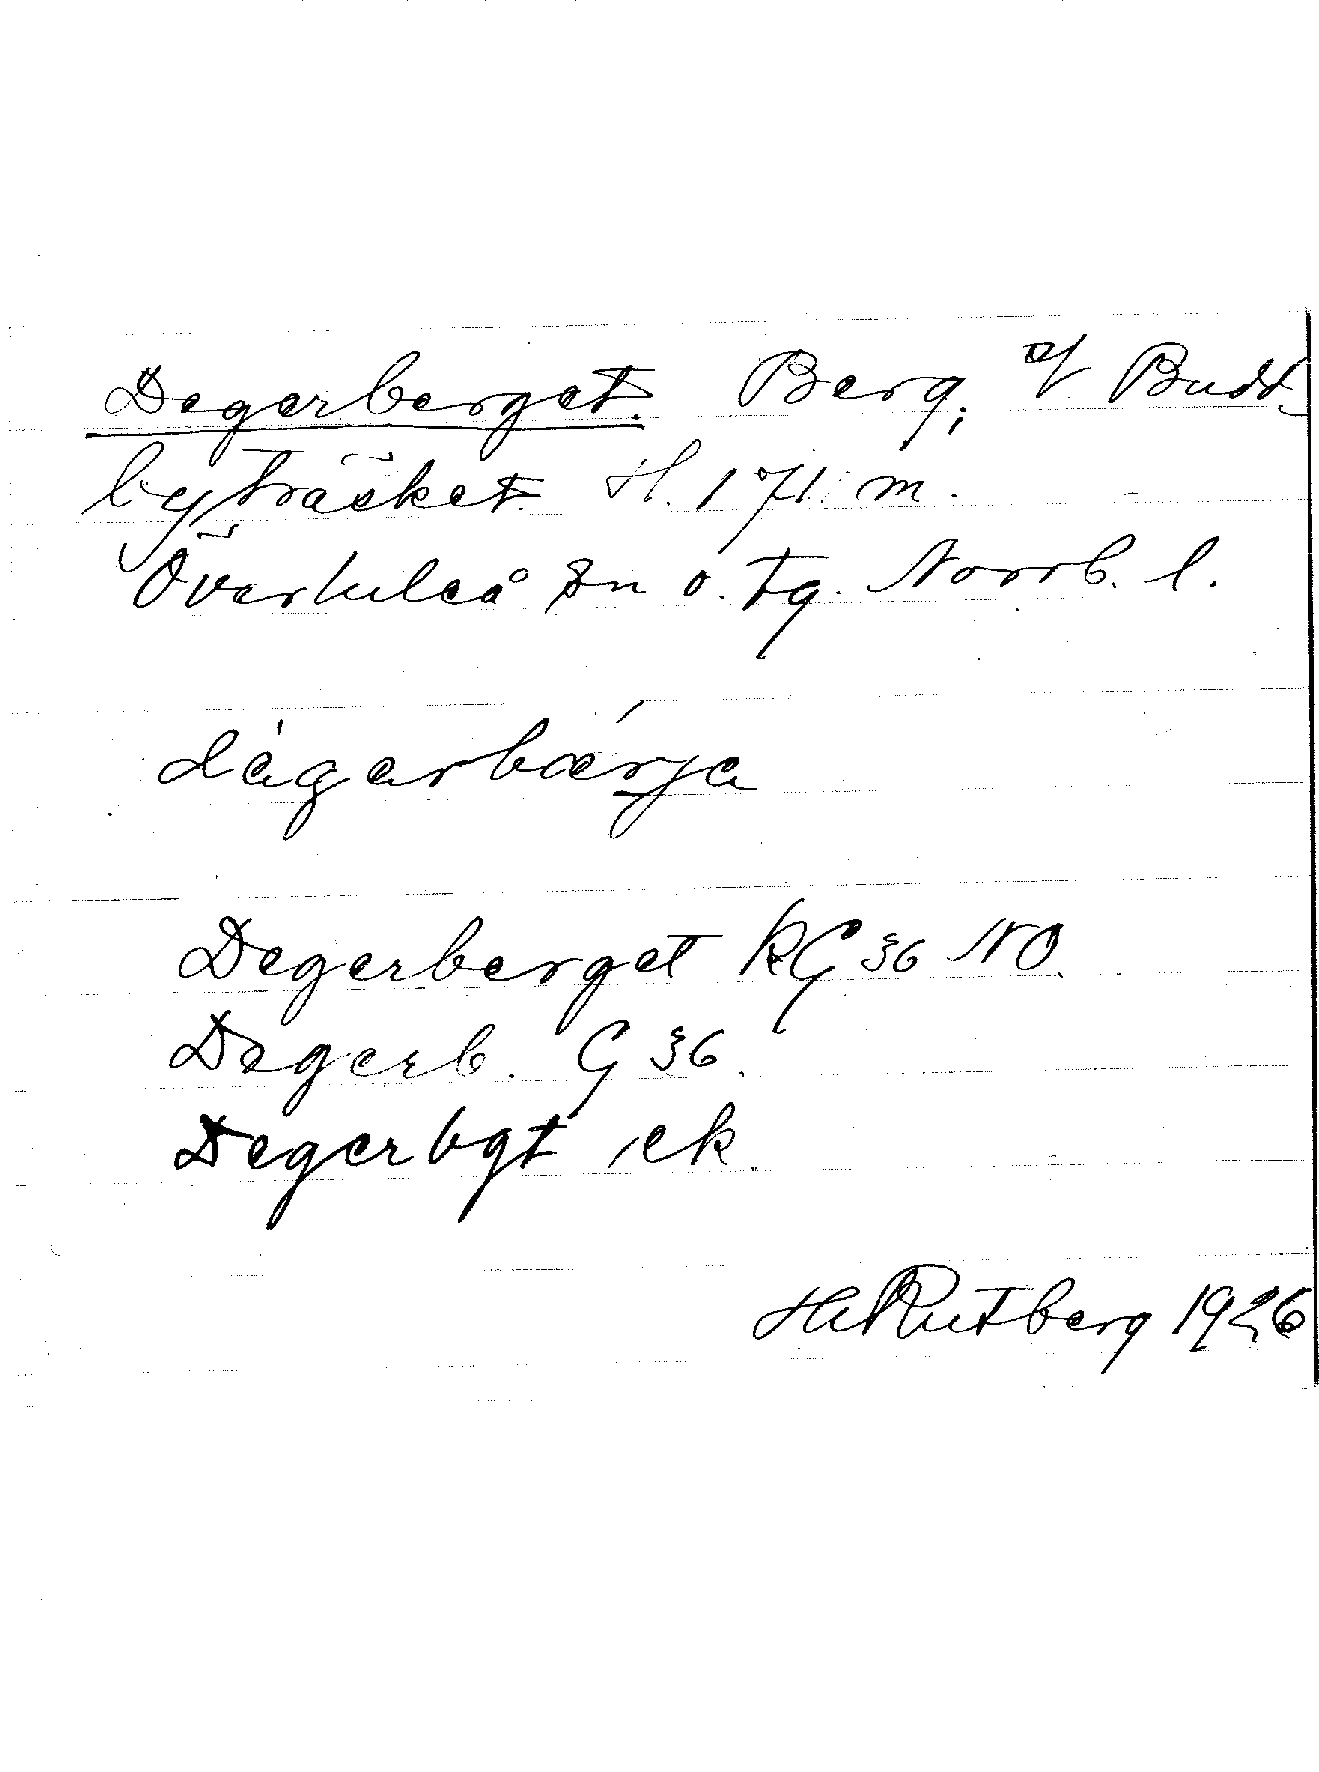 Degerberget. Berg, v/ Budd-
byträsket. H. 171 m.
Överluleå sn o. tg. Norrb. l.
dègarbærja
Degerberget kG 36 NO
Degerb. G 36.
Degerbgt ek.
H Rutberg 1926